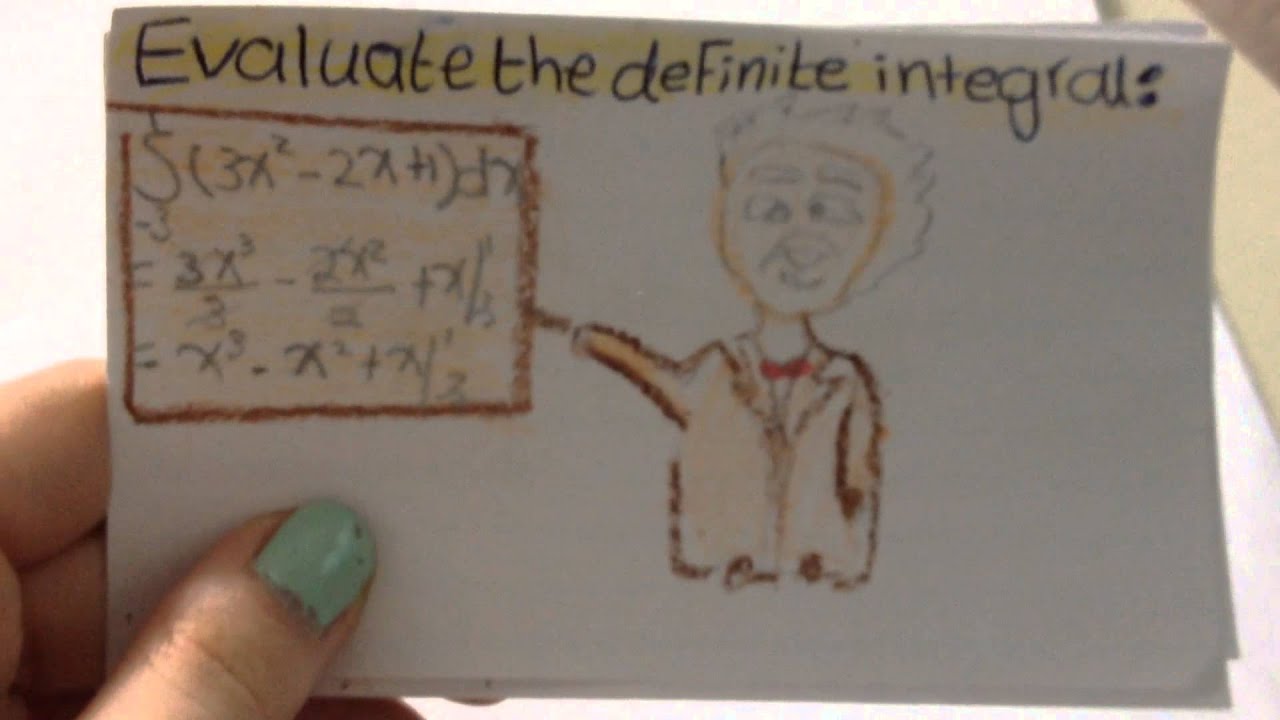 Evaluate the definite integral:
∫(3x² - 2x+1)dx
= 3x³/3 - 2x²/2 + x|
= x³ - x² + x|